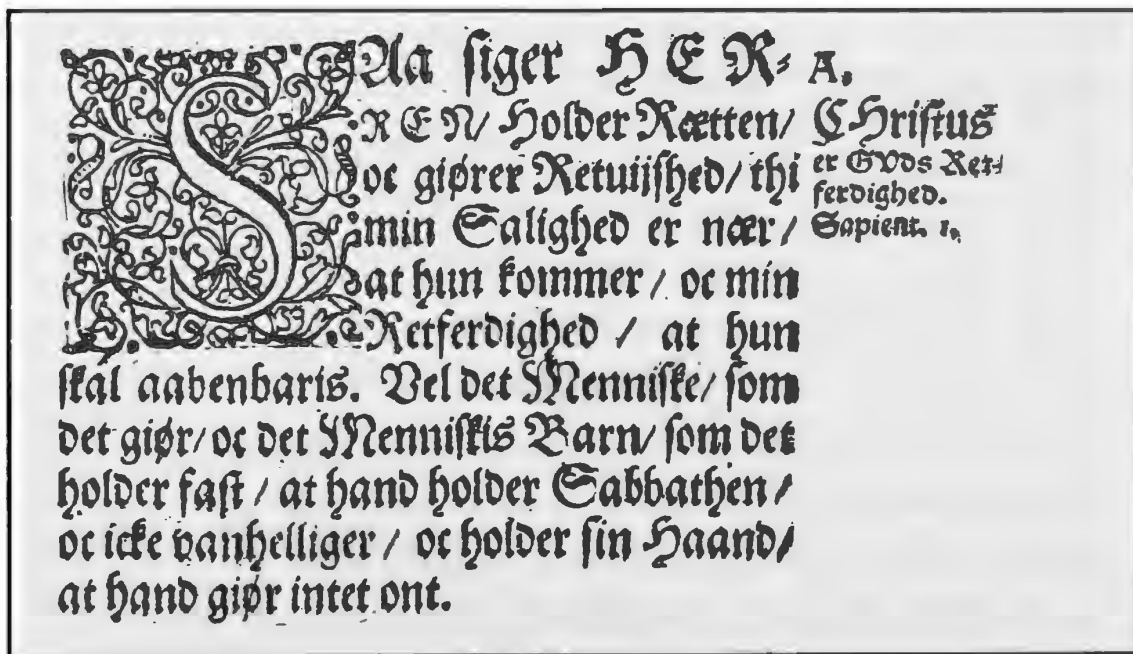 SAa siger HER⸗
REN/ Holder Rætten/
oc giører Retuijshed/ thi
min Salighed er nær/
at hun kommer/ oc min
Retferdighed / at hun
skal aabenbaris. Vel det Menniske/ som
det giør/ oc det Menniskis Barn/ som det
holder fast / at hand holder Sabbathen/
oc icke vanhelliger / oc holder sin Haand/
at hand giør intet ont.
A.
CHristus
er GVds Ret⸗
ferdighed.
Sapient. 1.